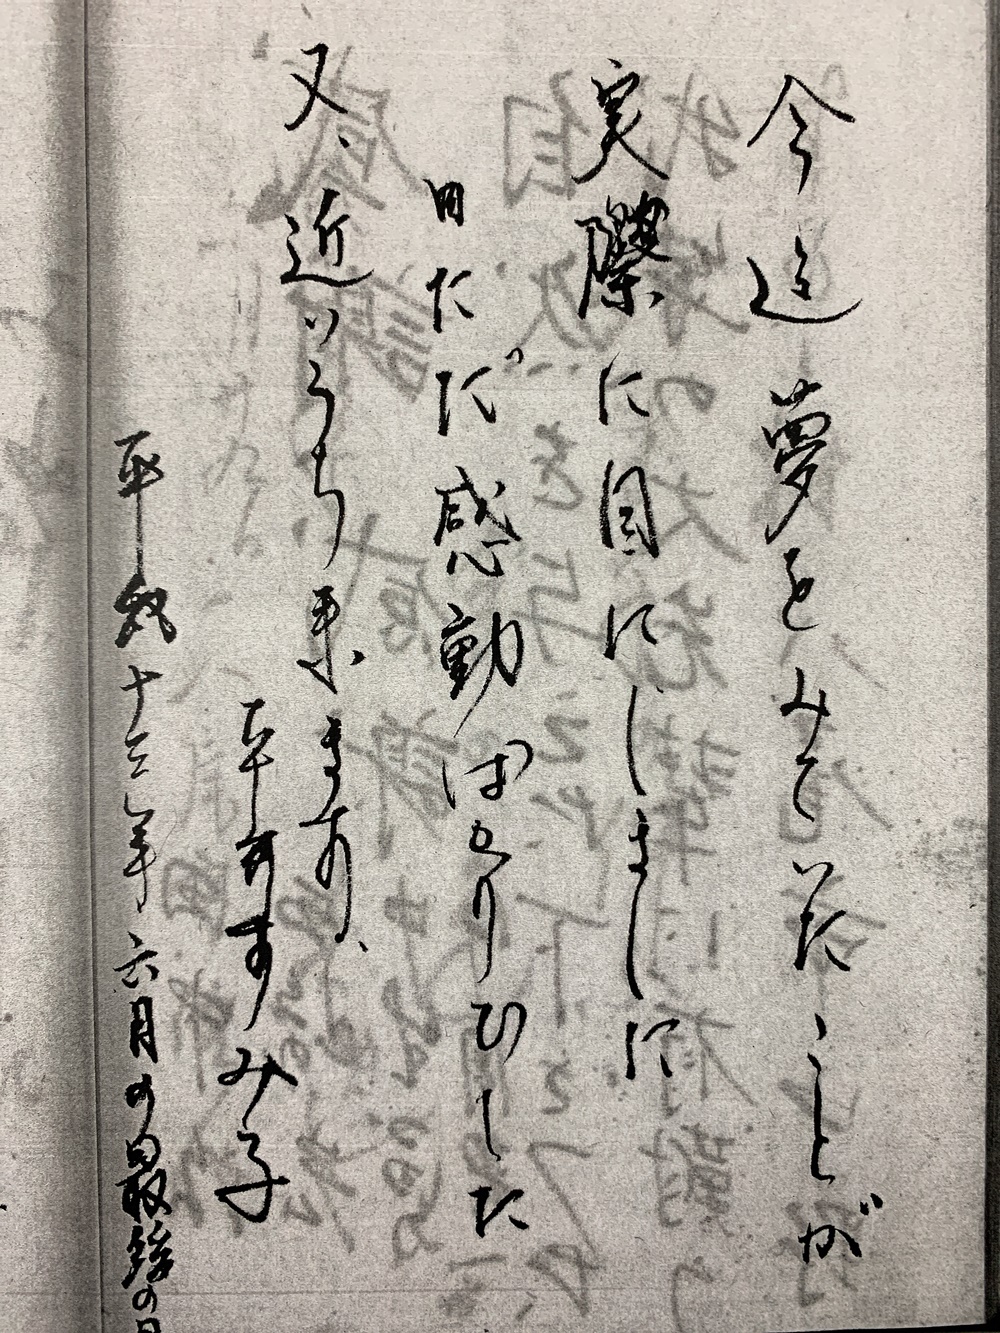 今迄夢をみていたことが
実際に目にしました
日ただだ感動ばかりでした
又、近いうち来ます、
みす子
平成十三年六月の最後の日